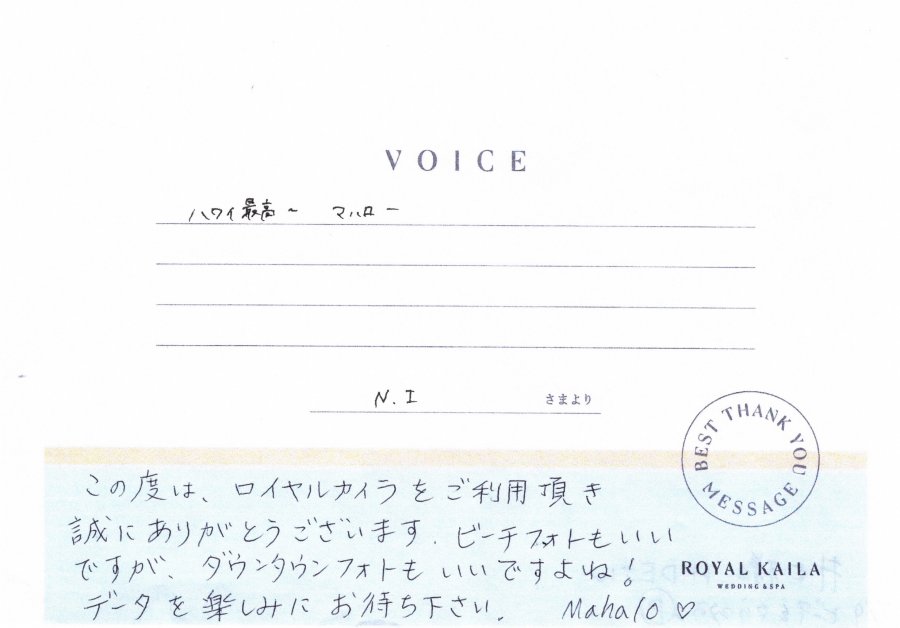 VOICE
ハワイ最高~ マハロー
N.I さまより
BEST THANK YOU MESSAGE
この度は、ロイヤルカイラをご利用頂き
誠にありがとうございます. ビーチフォトもいい
ですが、ダウンタウンフォトもいいですよね!
データを楽しみにお待ち下さい. Mahalo♡
ROYAL KAILA
WEDDING & SPA